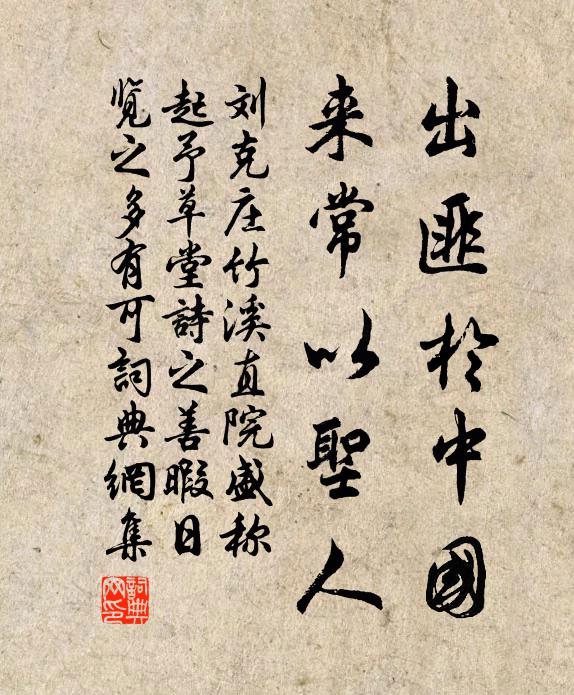 出匪於中國
来常以聖人
刘克庄竹溪直院盛称
起予草堂詩之善暇日
覧之多有可詞典網集
詞典
网印